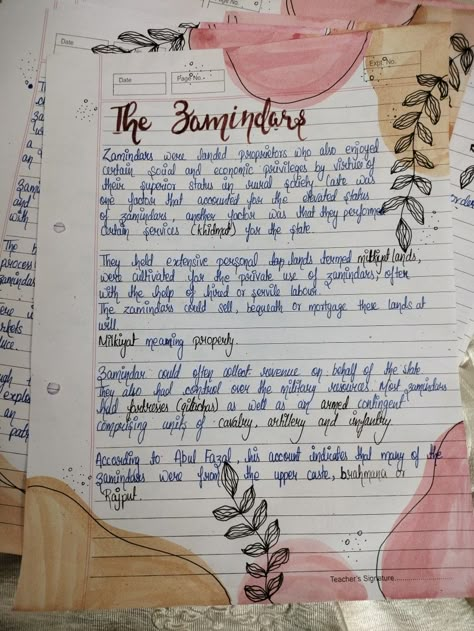 Date
Page No.
Expt. No.
Date
The Zamindars
Zamindars were landed proprietors who also enjoyed
certain social and economic privileges by virtue of
their superior status in rural society. Caste was
one factor that accounted for the elevated status
of zamindars, another factor was that they performed
certain services (khidmat) for the state.
They held extensive personal lands termed milkiyat lands,
were cultivated for the private use of zamindars, often
with the help of hired or servile labour.
The zamindars could sell, bequeath or mortgage these lands at
will.
Milkiyat meaning property.
Zamindar could often collect revenue on behalf of the state.
They also had control over the military resources. Most zamindars
held fortresses (qilachas) as well as an armed contingent
comprising units of cavalry, artillery and infantry
According to Abul Fazal, his account indicates that many of the
zamindars were from the upper caste, brahmana or
Rajput.
Teacher's Signature